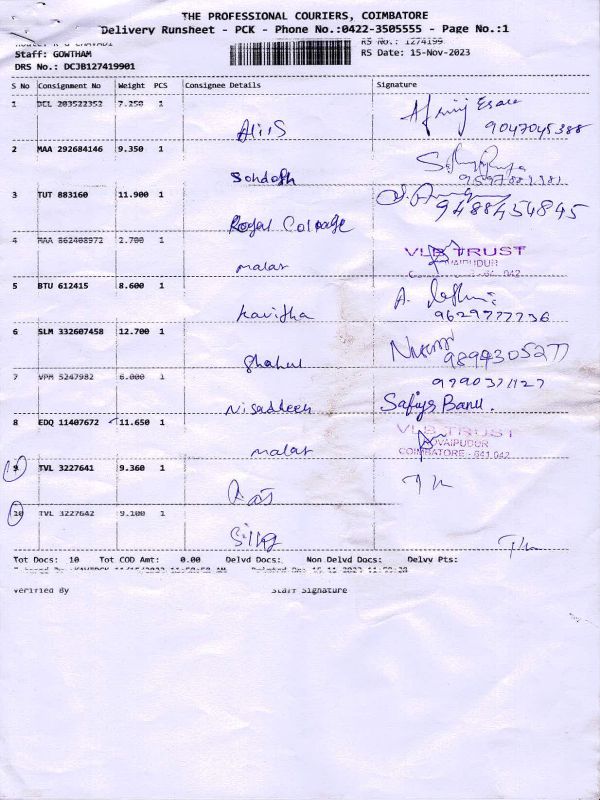 THE PROFESSIONAL COURIERS, COIMBATORE
Delivery Runsheet - PCK - Phone No.:0422-3505555 - Page No.:1
RS No.: 1274199
Staff: GOWTHAM
RS Date: 15-Nov-2023
DRS No.: DCJB127419901
S No Consignment No Weight PCS Consignee Details Signature
1 DEL 203522352 7.250 1
9047045388
2 MAA 292684146 9.350 1
Sondosh
3 TUT 883160 11.900 1
Royal
9488454845
4 MAA 862408972 2.700 1
malar
VLB TRUST
KOVAIPUDUR
5 BTU 612415 8.600 1
Kavitha
9629777736
6 SLM 332607458 12.700 1
Shahul
9894305277
7 VPM 5247982 6.000 1
Safiya Banu.
8 EDQ 11407672 11.650 1
malar
VLB TRUST
KOVAIPUDUR
COIMBATORE - 641 042
9 TVL 3227641 9.360 1
10 TVL 3227642 9.100 1
Tot Docs: 10 Tot COD Amt: 0.00 Delvd Docs: Non Delvd Docs: Delvv Pts:
Verified By Staff Signature